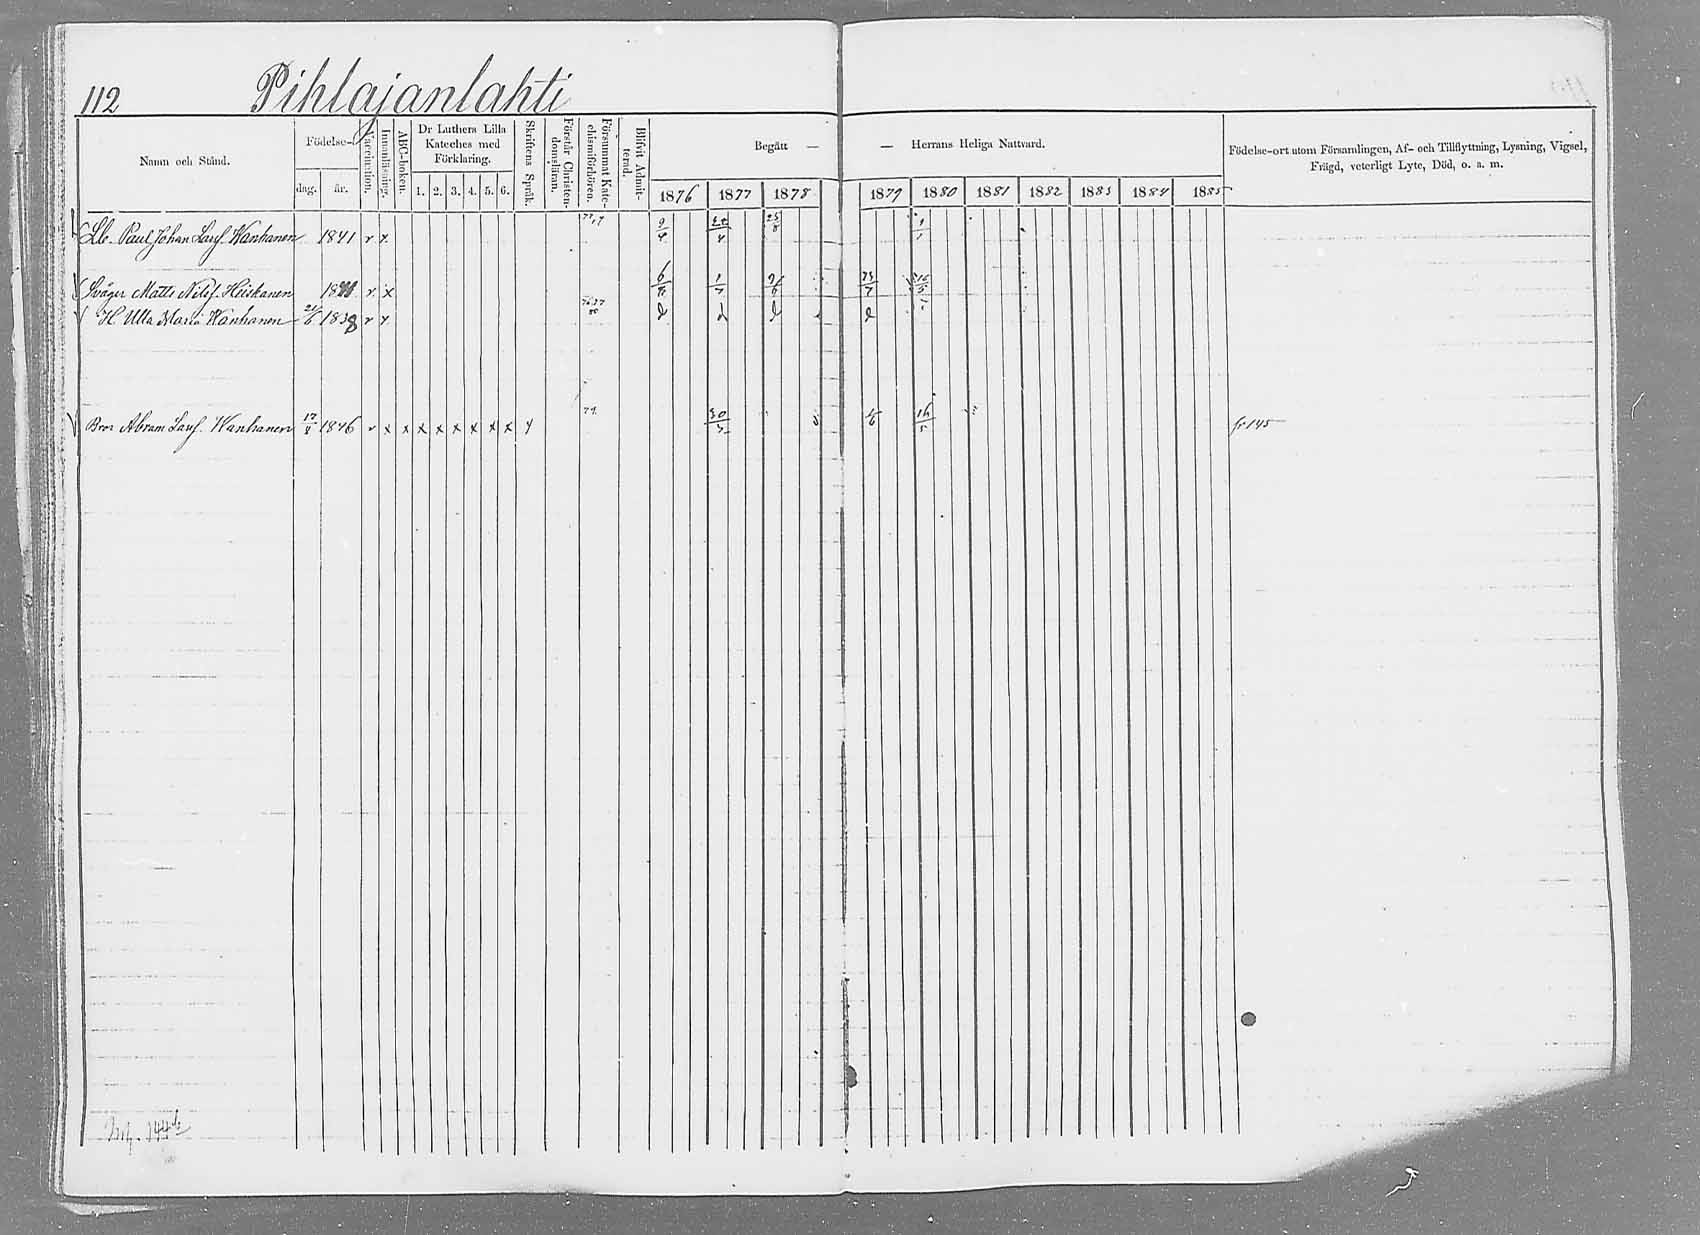 112 Pihlajanlahti
Namn och Stånd.
Födelse-
dag. år.
Vaccination.
Innanläsning.
ABC-boken.
Dr Luthers Lilla
Kateches med
Förklaring.
1. 2. 3. 4. 5. 6.
Skriftens Språk.
Förstår Christen-
domsläran.
Försummat Kate-
chismiförhören.
Blifvit Admit-
terad.
Begått — — Herrans Heliga Nattvard.
1876 1877 1878 1879 1880 1881 1882 1883 1884 1885
Födelse-ort utom Församlingen, Af- och Tillflyttning, Lysning, Vigsel,
Frägd, veterligt Lyte, Död, o. a. m.
Lb. Paul Johan Larsf. Wanhanen 1841 v x
Svåger Matts Nilsf. Heiskanen v x
H. Ulla Maria Wanhanen 1838 v x
Bror Abram Larsf. Wanhanen 1846 v x x x x x x x x 79. 30/3 16/5 fr 145